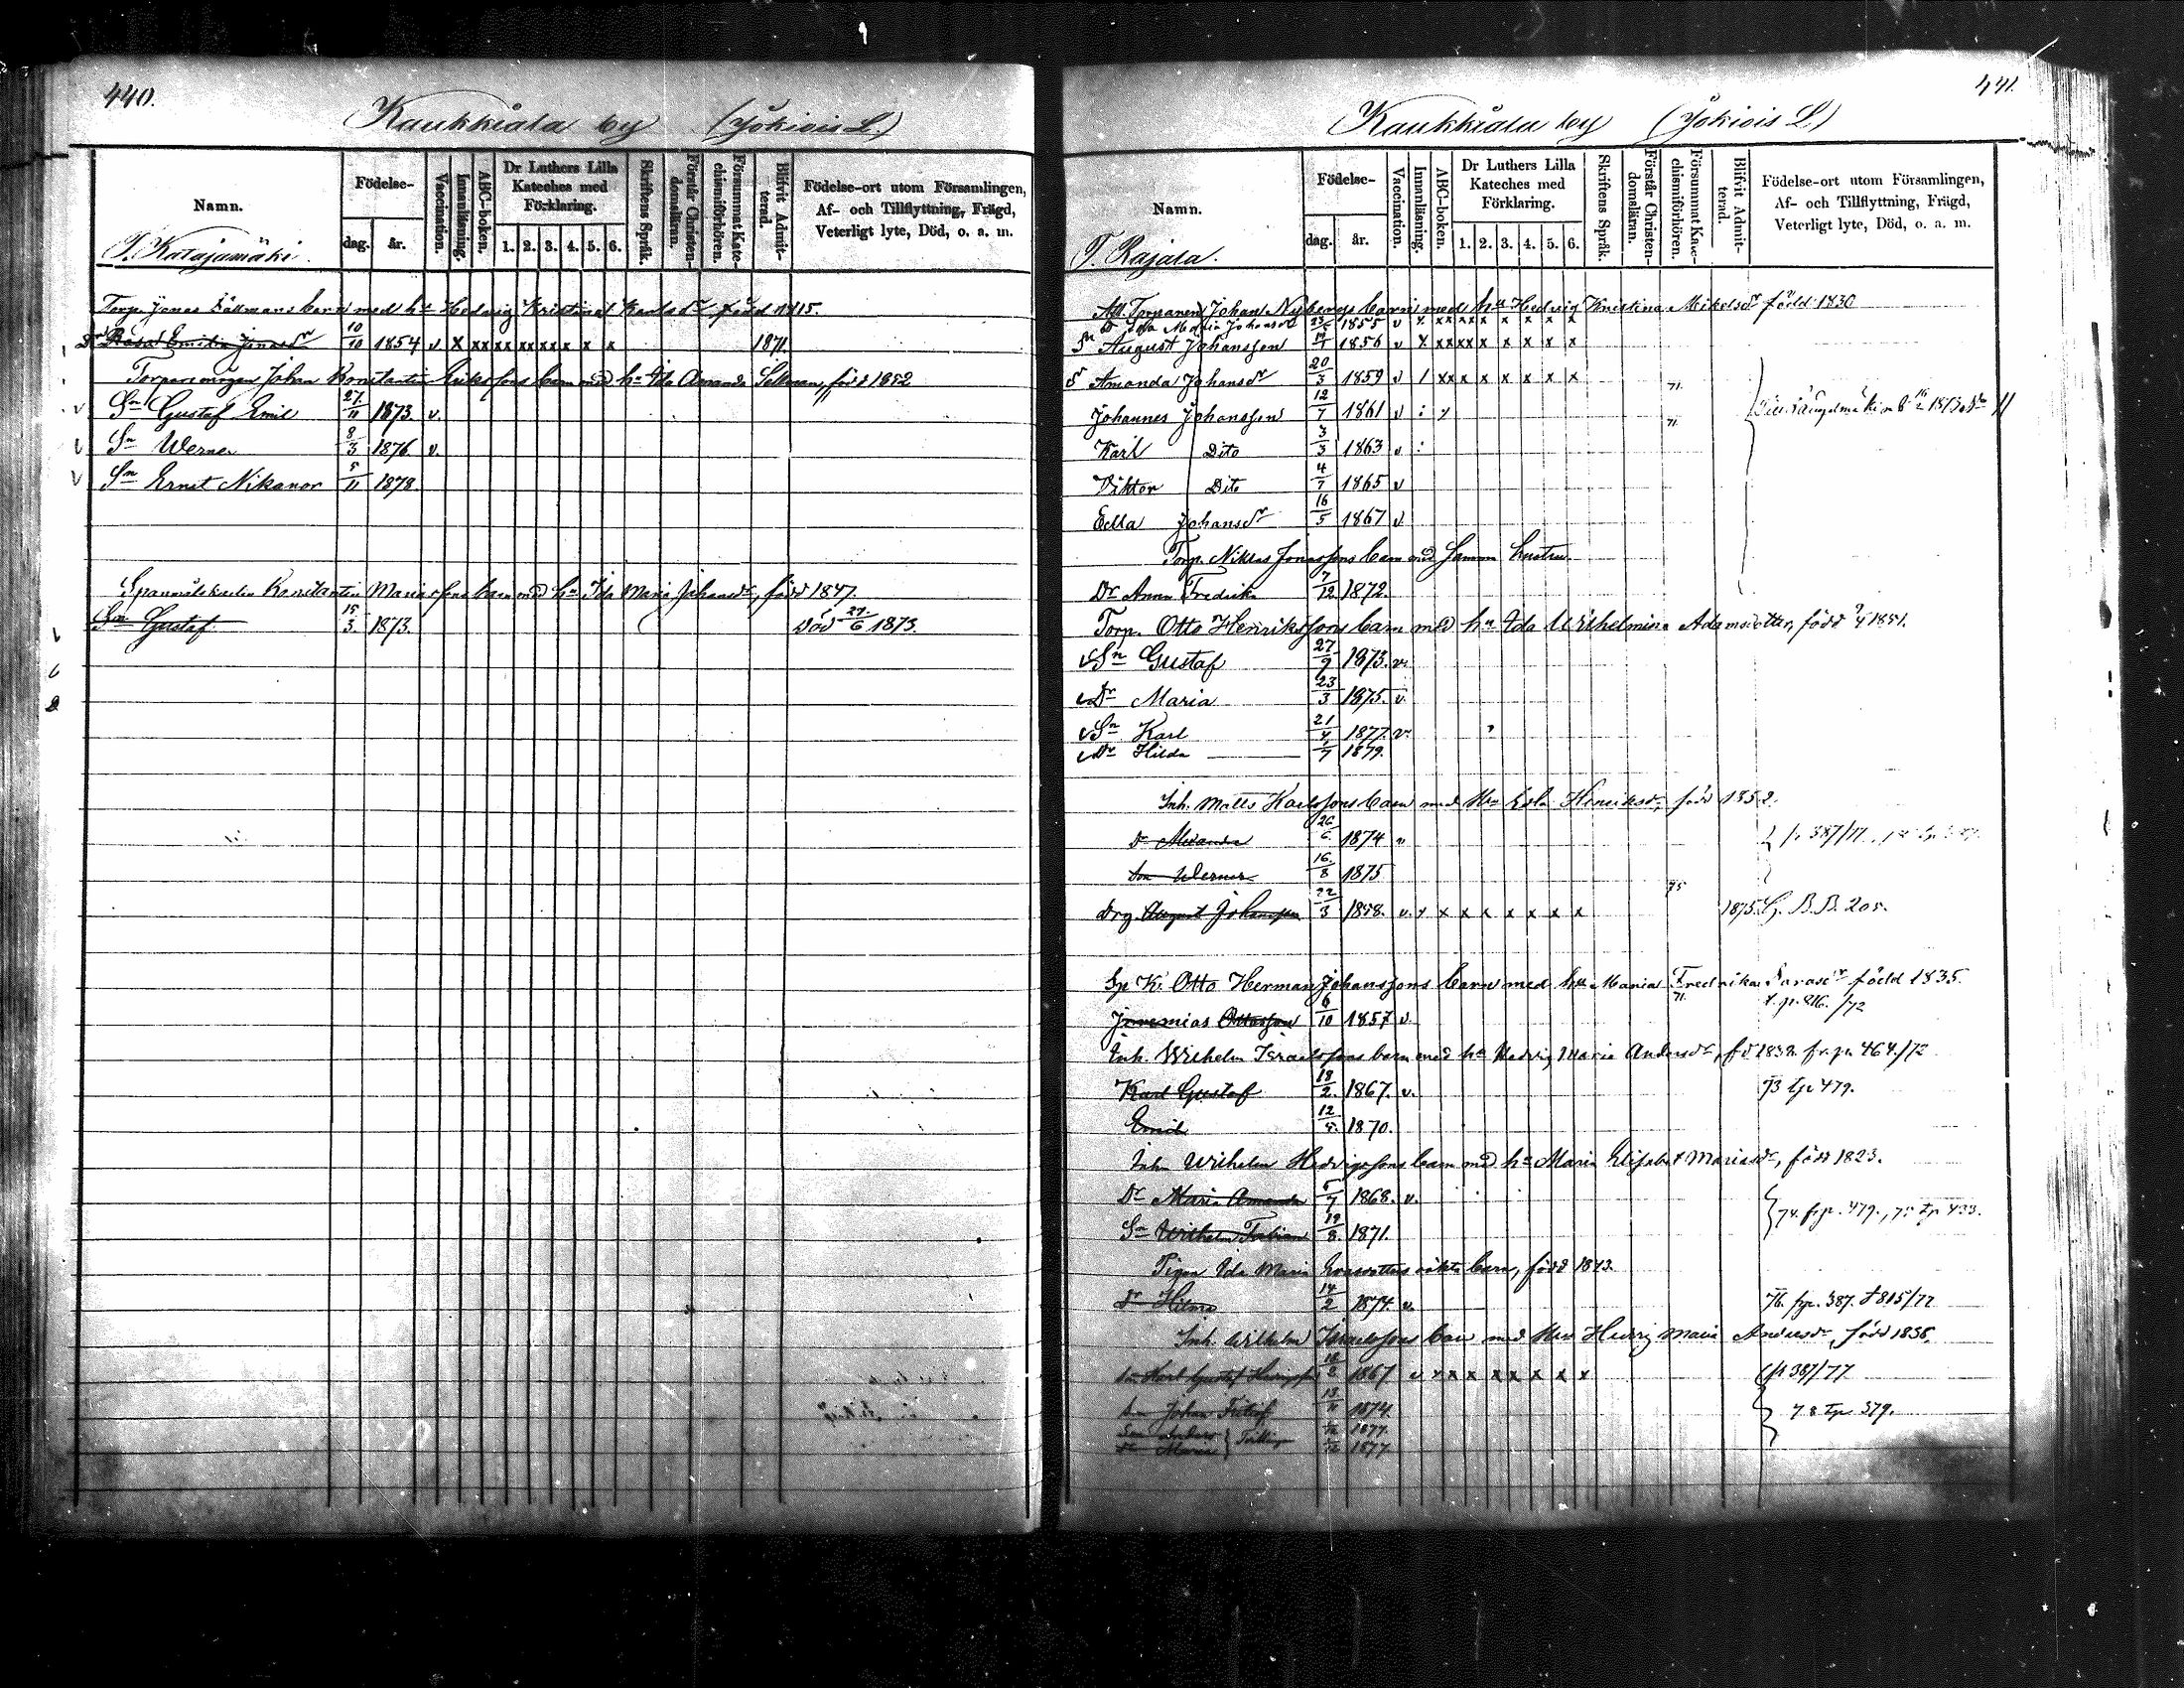 440.
Kaukkiala by (Jokiois L.)
Namn.
Födelse-
dag. år.
Vaccination.
Innanläsning.
ABC-boken.
Dr Luthers Lilla Kateches med Förklaring.
1. 2. 3. 4. 5. 6.
Skriftens Språk.
Förstår Christendomsläran.
Försummat Katechismiförhören.
Blifvit Admitterad.
Födelse-ort utom Församlingen,
Af- och Tillflyttning, Frägd,
Veterligt lyte, Död, o. a. m.
T. Katajamäki.
Torp. Jonas Sällmans barn med hu Hedvig Kristina Karlsdr född 1815.
Dr Rosa Emilia Jonasdr 10/10 1854 v x xx xx xx xx x x x 1871.
Torparemågen Johan Konstantin Erikssons barn med hu Ida Amanda Sellman, född 1852
v Sn Gustaf Emil 27/11 1873. v.
v Sn Werner 8/3 1876 v.
v Sn Ernst Nikanor 5/11 1878.
Spanmålskarlen Konstantin Mariassons barn med hu Ida Maria Johansdr, född 1847.
Sn Gustaf 15/3. 1873. Död 27/6 1873.
441.
Kaukkiala by (Jokiois L)
Namn.
Födelse-
dag. år.
Vaccination.
Innanläsning.
ABC-boken.
Dr Luthers Lilla Kateches med Förklaring.
1. 2. 3. 4. 5. 6.
Skriftens Språk.
Förstår Christendomsläran.
Försummat Katechismiförhören.
Blifvit Admitterad.
Födelse-ort utom Församlingen,
Af- och Tillflyttning, Frägd,
Veterligt lyte, Död, o. a. m.
T. Rajala.
Afl. Torparen Johan Nybergs barn med hu Hedvig Kristina Mikelsdr född 1830
D Ida Maria Johansdr 1855 v x xx xx x x x x x
Sn August Johansson 1856 v x xx xx x x x x x
D Amanda Johansdr 20/3 1859 v / xx x x x x x x 71.
Johannes Johansson 12/7 1861 v 71.
Karl Dito 3/3 1863 v
Viktor Dito 4/7 1865 v
Edla Johansdr 16/5 1867 v
Torp. Niklas Jonassons barn med samma hustru
Dr Anna Fredrika 7/12 1872.
Torp. Otto Henrikssons barn med hu Ida Wilhelmina Adamsdotter, född 1851.
v Sn Gustaf 27/9 1873. v.
v Dr Maria 23/3 1875. v.
v Sn Karl 21/4 1877. v.
v Dr Hilda 1879.
Inh. Matts Karlssons barn med Hu Edla Henriksdr, född 1852.
Dr 26/6 1874 p. 387/77
Son Werner 16/8 1875
Drg. August Johansson 22/3 1858. v. x x x x x x x x 75 1875. B.B. 205.
Sp K. Otto Herman Johanssons barn med hu Maria Fredrika född 1835.
Jeremias Ottosson 6/10 1857 v. 71. t. p. 816./72
Inh. Wilhelm Israelssons barn med hu Hedvig Maria Andersdr, fd 1838. fr. p. 464./72
Karl Gustaf 18/2. 1867. v. 73 tp 479.
Emil 12/5. 1870.
Inh Wilhelm Hedvigssons barn med hu Maria Elisabet Mariasdr, född 1823.
Dr Maria Amanda 5/7 1868. v.
Sn Wilhelm Fabian 19/8. 1871. 74. fr p. 479., 75 tp 433.
Pigan Ida Maria oäkta barn, född 1843.
Dr Hilma 14/2 1874. v. 76. fr p. 387. t 815/77
Inh. Wilhelm Israelssons barn med Hu Hedvig Maria Andersdr, född 1838.
Sn Karl Gustaf 18/2 1867 v x x x x x x x x p 387/77
Sn Johan Fritiof 13/11 1874. 78 tp. 379.
Son Anders } Tvillingar 1877.
Dr Maria 1877